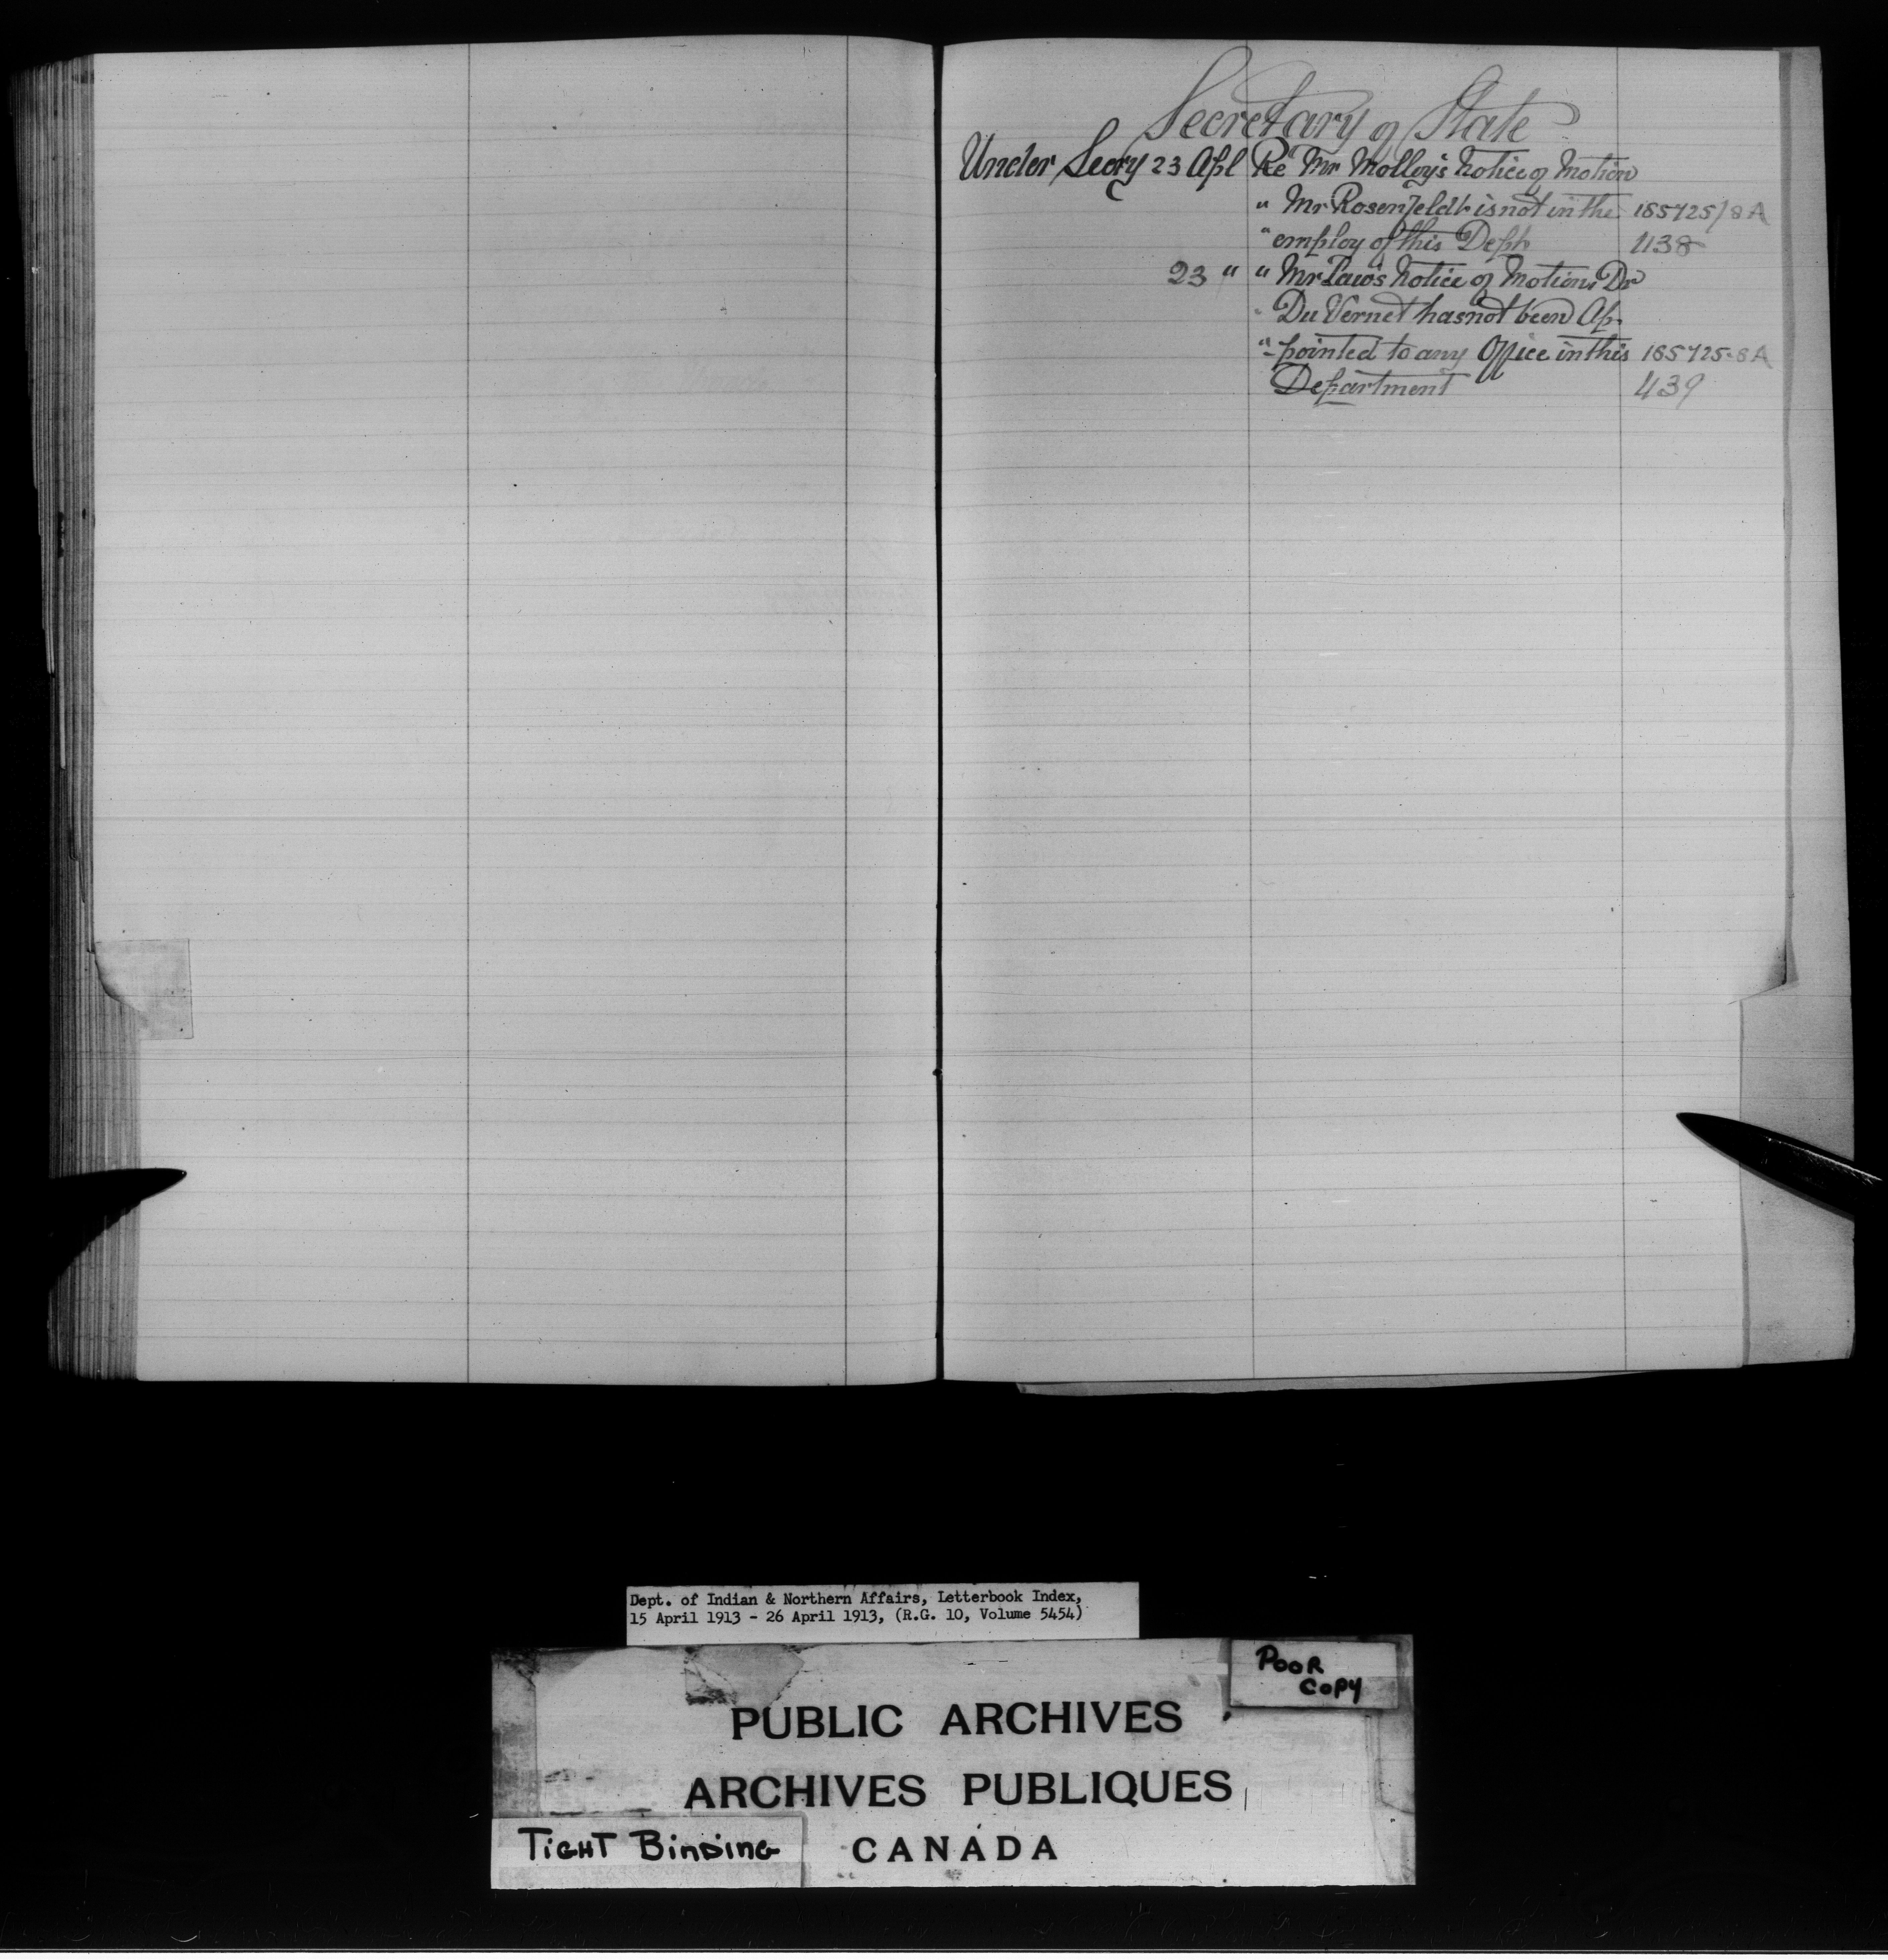 Secretary of State
Under Secry 23 Apl Re Mr Molloy's Notice of Motion
" Mr Rosenfeldt is not in the 185725/8A
" employ of this Dept 438
23 " " Mr Paw's Notice of Motion Dr
" Du Vernet has not been Ap-
" pointed to any Office in this 185725-8A
Department 439
Dept. of Indian & Northern Affairs, Letterbook Index,
15 April 1913 - 26 April 1913, (R.G. 10, Volume 5454)
POOR
COPY
PUBLIC ARCHIVES
ARCHIVES PUBLIQUES
TIGHT BINDING
CANADA